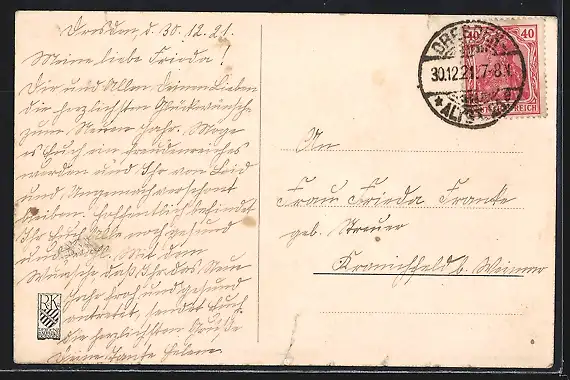 Dresden, d. 30.12.21.
Meine liebe Frieda!
Dir und Allen Deinen Lieben
die herzlichsten Glückwünsche
zum Neuen Jahr. Möge
es Euch ein freudenreiches
werden und Ihr von Leid
und Ungemach verschont
bleiben. Hoffentlich befindet
Ihr Euch Alle noch gesund
und Mit dem
Wunsche, daß Ihr das Neue
Jahr froh und gesund
antretet, sendet Euch
die herzlichsten Grüße
Deine Tante Helene.
RK
DRESDEN
30.12.21. 7-8 N
* ALTST.
40
REICH
An
Frau Frieda Franke
geb. Streuer
Kranichfeld b. Weimar